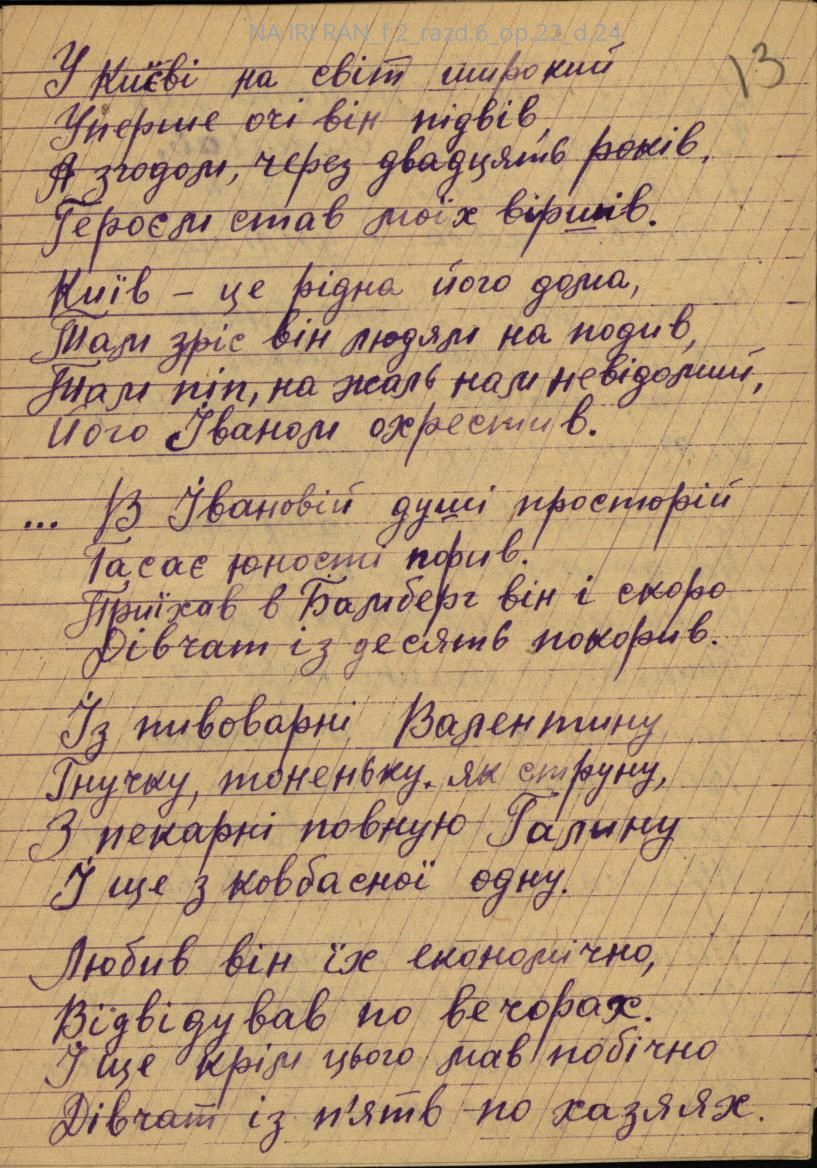 NA IRI RAN_f.2_razd.6_op.22_d.24
13
У Київі на світ широкий
Уперше очі він підвів,
А згодом, через двадцять років,
Героєм став моїх віршів.
Київ – це рідна його дома,
Там зріс він людям на подив,
Там піп, на жаль нам невідомий,
Його Іваном охрестив.
... В Івановій душі просторій
Гасає юности порив.
Приїхав в Бамберг він і скоро
Дівчат із десять покорив.
Із пивоварні Валентину
Гнучку, тоненьку, як струну,
З пекарні повную Галину
І ще з ковбасної одну.
Любив він їх економічно,
Відвідував по вечорах.
І ще крім цього мав побічно
Дівчат із п'ять по хазяях.